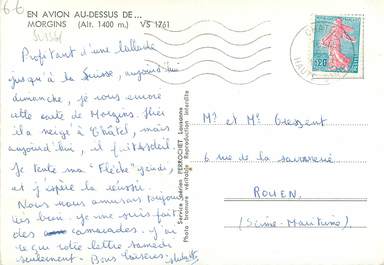 66
EN AVION AU-DESSUS DE...
MORGINS (Alt. 1400 m.) VS 1761
SUISSE
Profitant d'une ballade
jusqu'à la Suisse, aujourd'hui
dimanche, je vous envoie
cette carte de Morgins. Hier
il a neigé à Châtel, mais
aujourd'hui, il fait soleil
Je tente ma "Flèche" jeudi,
et j'espère la réussir.
Nous nous amusons toujours
très bien. je me suis fait
des camarades. j'ai
reçu votre lettre samedi
seulement - Bons baisers
Service aérien PERROCHET Lausanne
Photo bromure véritable Reproduction interdite
0,20
Mr et Me Gressent
6 rue de la savonnerie
ROUEN
(Seine-Maritime)